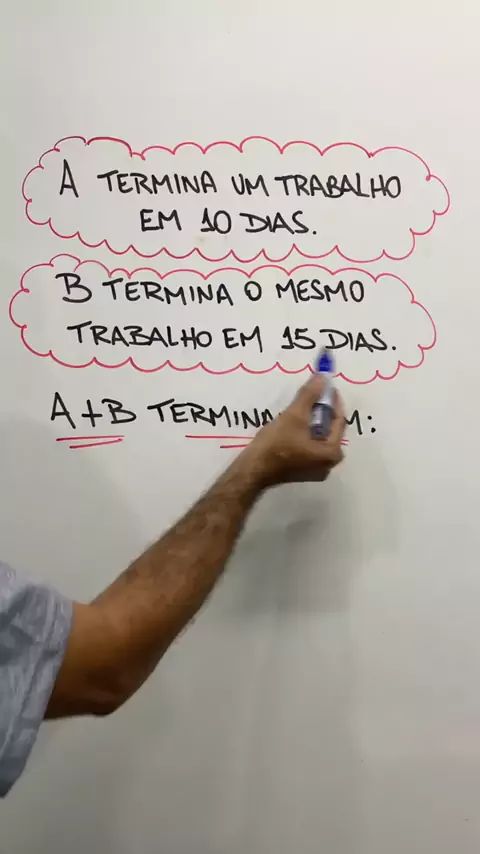 A TERMINA UM TRABALHO
EM 10 DIAS.
B TERMINA O MESMO
TRABALHO EM 15 DIAS.
A+B